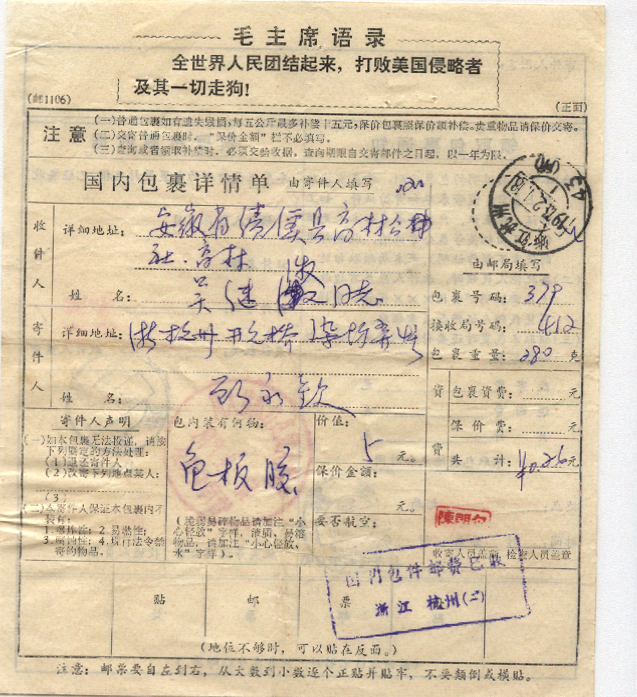 毛主席语录
全世界人民团结起来，打败美国侵略者
及其一切走狗！
(邮1106)
(正面)
注意
(一)普通包裹如有遗失毁损，每五公斤最多补偿十五元，保价包裹照保价额补偿。贵重物品请保价交寄。
(二)交寄普通包裹时，“保价金额”栏不必填写。
(三)查询或者领取补偿时，必须交验收据，查询期限自交寄邮件之日起，以一年为限。
国内包裹详情单 由寄件人填写
收件人
详细地址：安徽省绩溪县
社
姓名：吴
寄件人
详细地址：浙杭州
姓名：
由邮局填写
包裹号码：379
接收局号码：412
包裹重量：280克
资费
包裹资费：元
保价费：元
共计：¥0.26元
寄件人声明
(一)如本包裹无法投递，请按
下列指定的方法处理：
(1)退还寄件人
(2)改寄下列地点某人：
(3)
(二)寄件人保证本包裹内不
装有：
1.爆炸性；2.易燃性；
3.腐蚀性；4.现行法令禁
寄的物品。
包内装有何物：
板胶
(脆弱易碎物品请加注“小
心轻放”字样，液质、易溶
物品，请加注“小心轻放、
水”字样)。
价值：
5元。
保价金额：
元。
要否航空：
收寄人员盖章 检查人员盖章
国内包件邮费已收
浙江 杭州(二)
贴邮票
(地位不够时，可以贴在反面。)
注意：邮票要自左到右，从大数到小数逐个正贴并贴牢，不要颠倒或横贴。